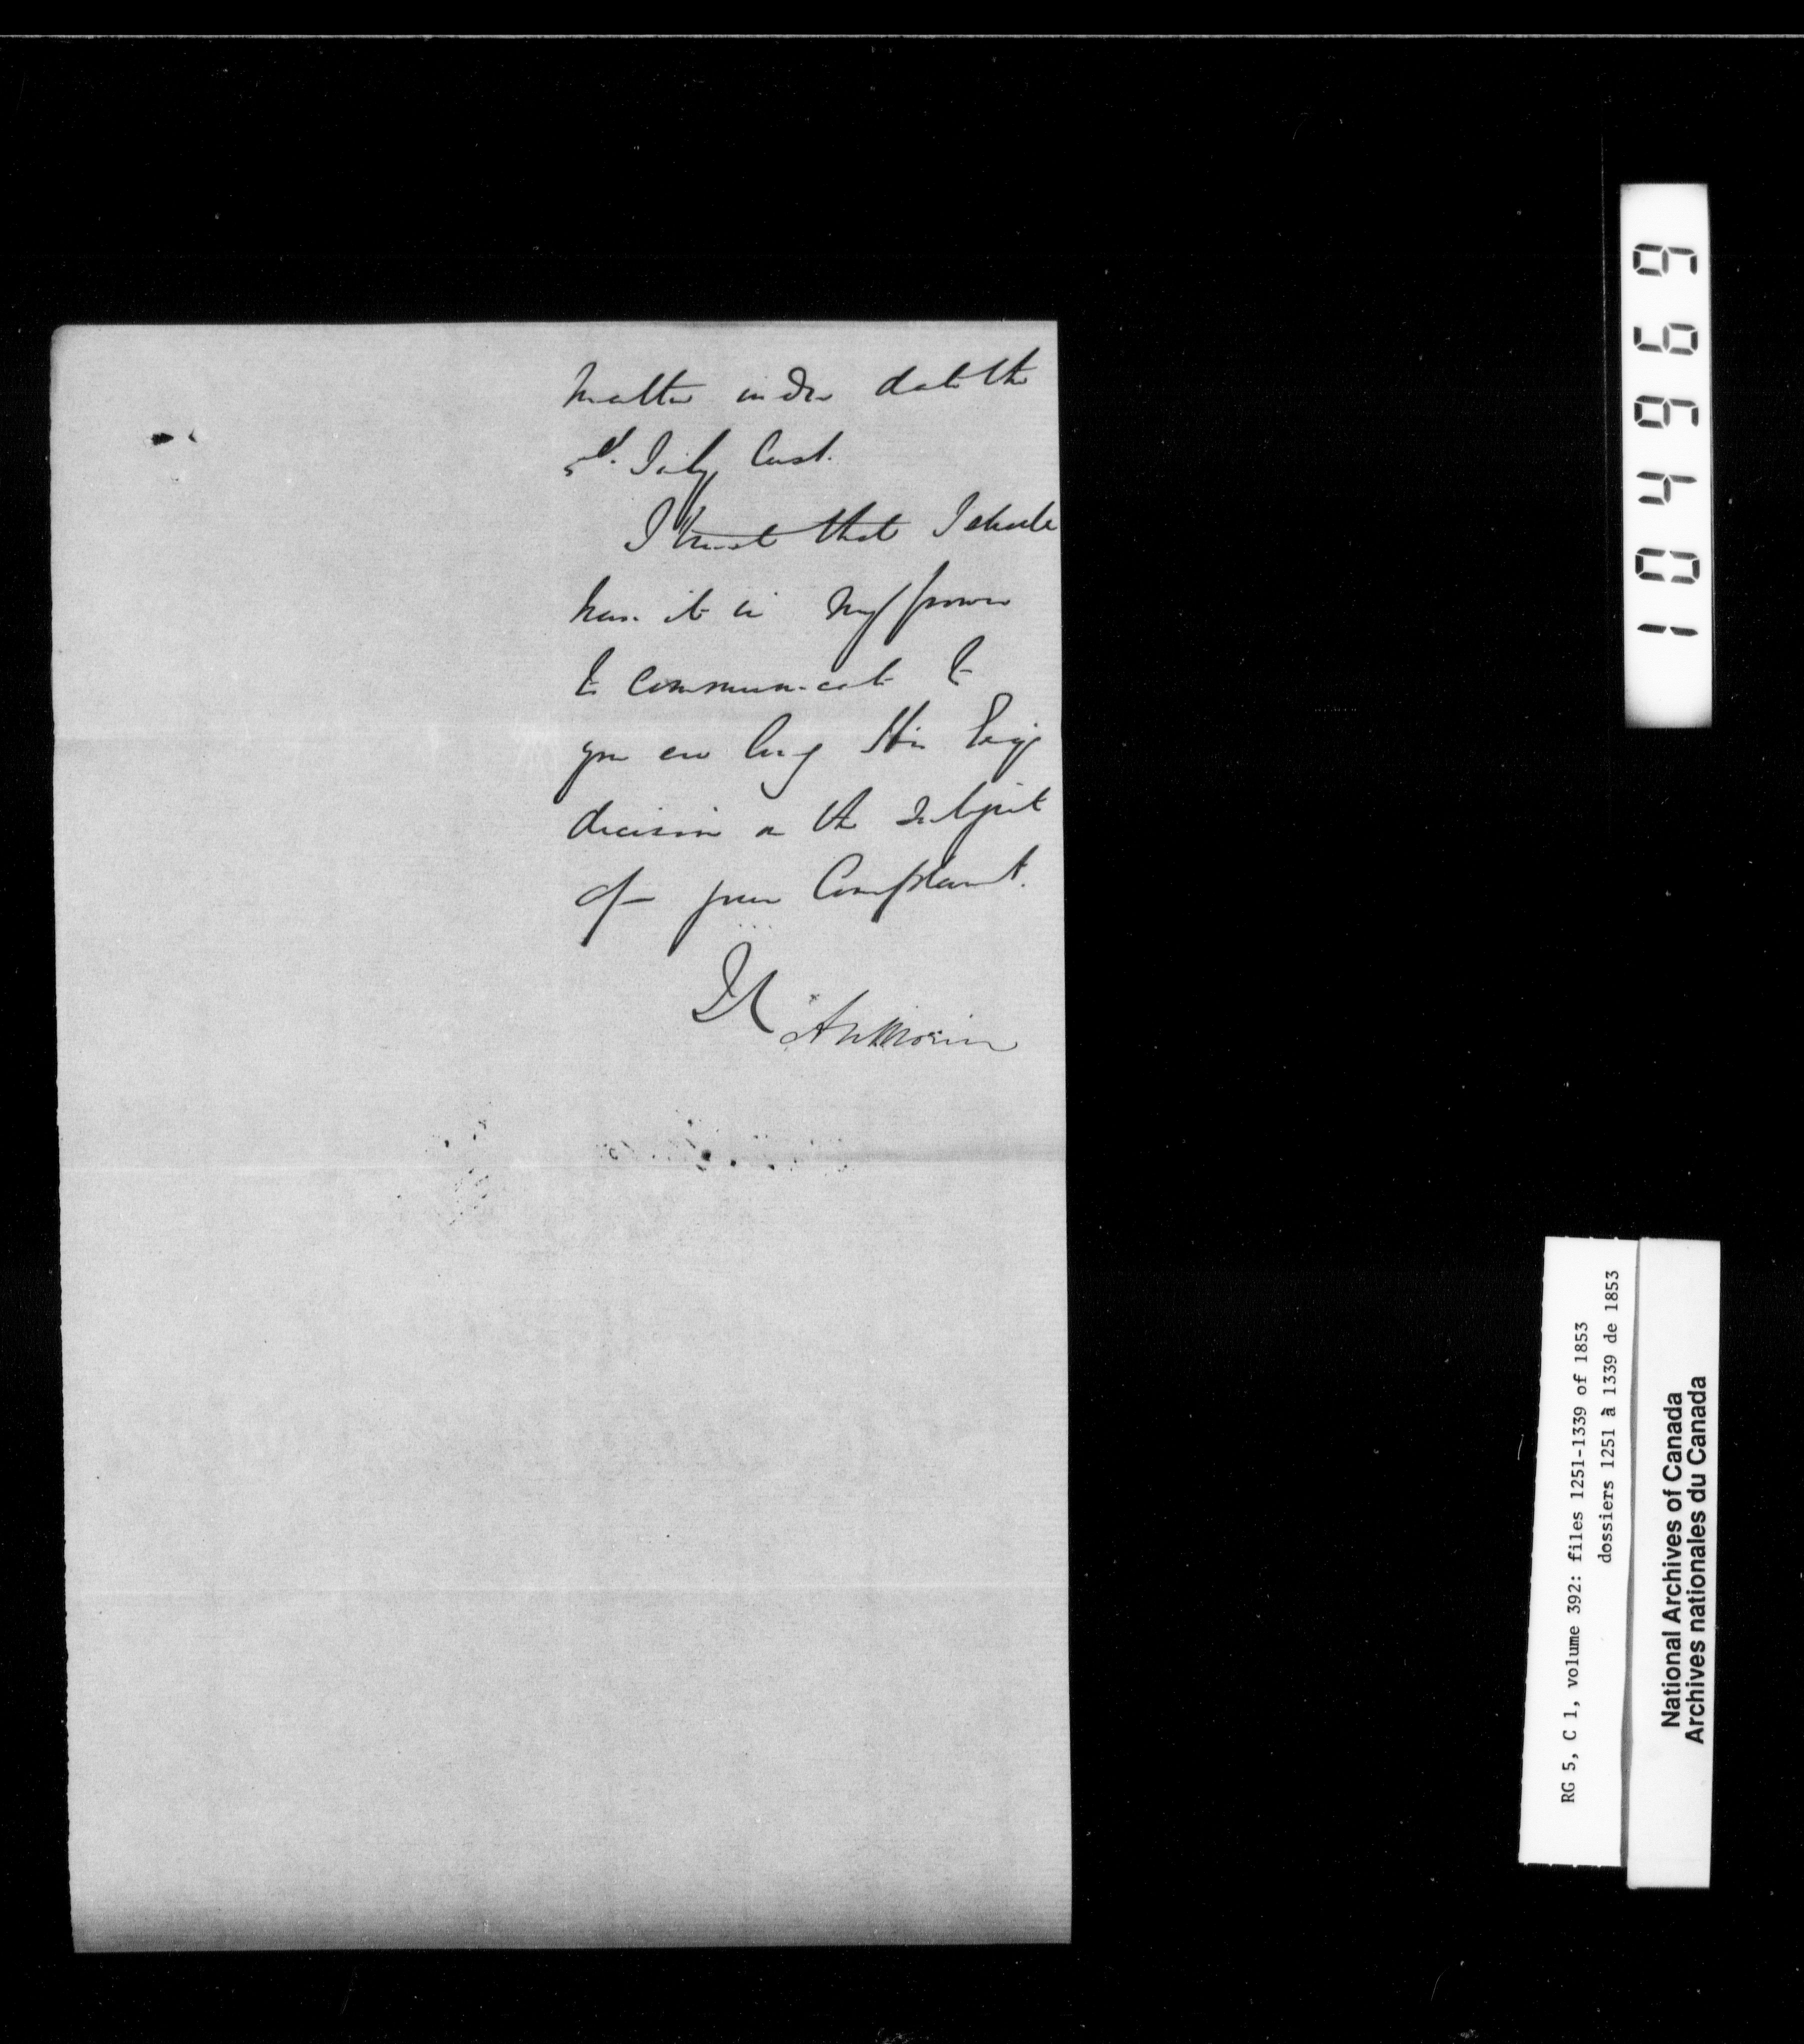 matter under date the
5th. July last.
I trust that I shall
have it in my power
to communicate to
you ere long His Excy's
decision on the subject
of your Complaint.
AN Morin
104969
RG 5, C 1, volume 392: files 1251-1339 of 1853
dossiers 1251 à 1339 de 1853
National Archives of Canada
Archives nationales du Canada